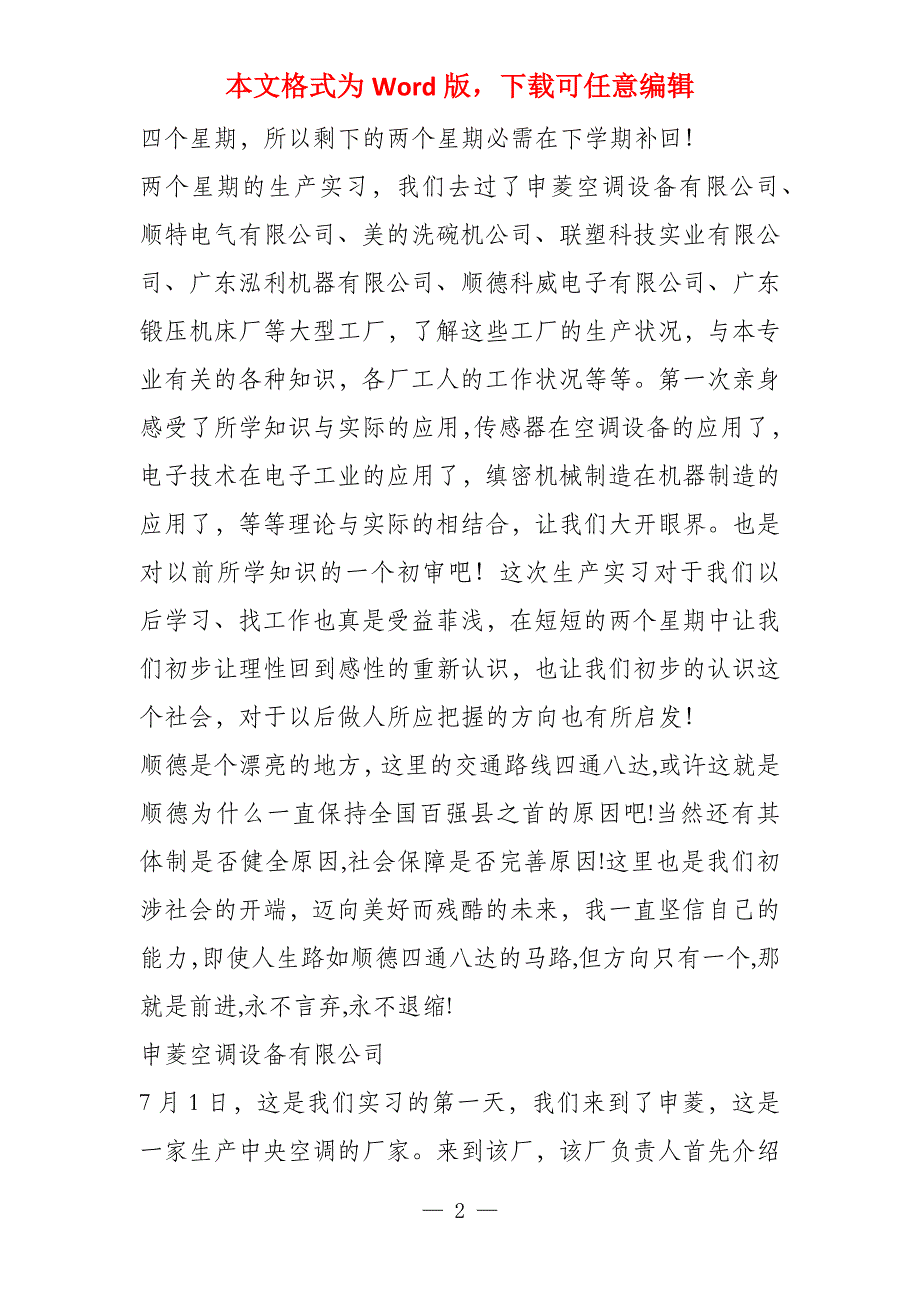 本文格式为 Word 版，下载可任意编辑
四个星期，所以剩下的两个星期必需在下学期补回！
两个星期的生产实习，我们去过了申菱空调设备有限公司、
顺特电气有限公司、美的洗碗机公司、联塑科技实业有限公
司、广东泓利机器有限公司、顺德科威电子有限公司、广东
锻压机床厂等大型工厂，了解这些工厂的生产状况，与本专
业有关的各种知识，各厂工人的工作状况等等。第一次亲身
感受了所学知识与实际的应用,传感器在空调设备的应用了，
电子技术在电子工业的应用了，缜密机械制造在机器制造的
应用了，等等理论与实际的相结合，让我们大开眼界。也是
对以前所学知识的一个初审吧！这次生产实习对于我们以
后学习、找工作也真是受益菲浅，在短短的两个星期中让我
们初步让理性回到感性的重新认识，也让我们初步的认识这
个社会，对于以后做人所应把握的方向也有所启发！
顺德是个漂亮的地方，这里的交通路线四通八达,或许这就是
顺德为什么一直保持全国百强县之首的原因吧!当然还有其
体制是否健全原因,社会保障是否完善原因!这里也是我们初
涉社会的开端，迈向美好而残酷的未来，我一直坚信自己的
能力,即使人生路如顺德四通八达的马路,但方向只有一个,那
就是前进,永不言弃,永不退缩!
申菱空调设备有限公司
7 月 1 日，这是我们实习的第一天，我们来到了申菱，这是
一家生产中央空调的厂家。来到该厂，该厂负责人首先介绍
— 2 —